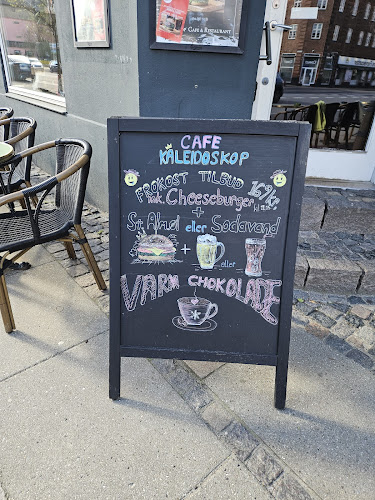 CAFE & RESTAURANT
CAFE
KALEIDOSKOP
FROKOST TILBUD
Cheeseburger
169kr
+
St. Almol eller Sodavand
+
eller
VARM CHOKOLADE